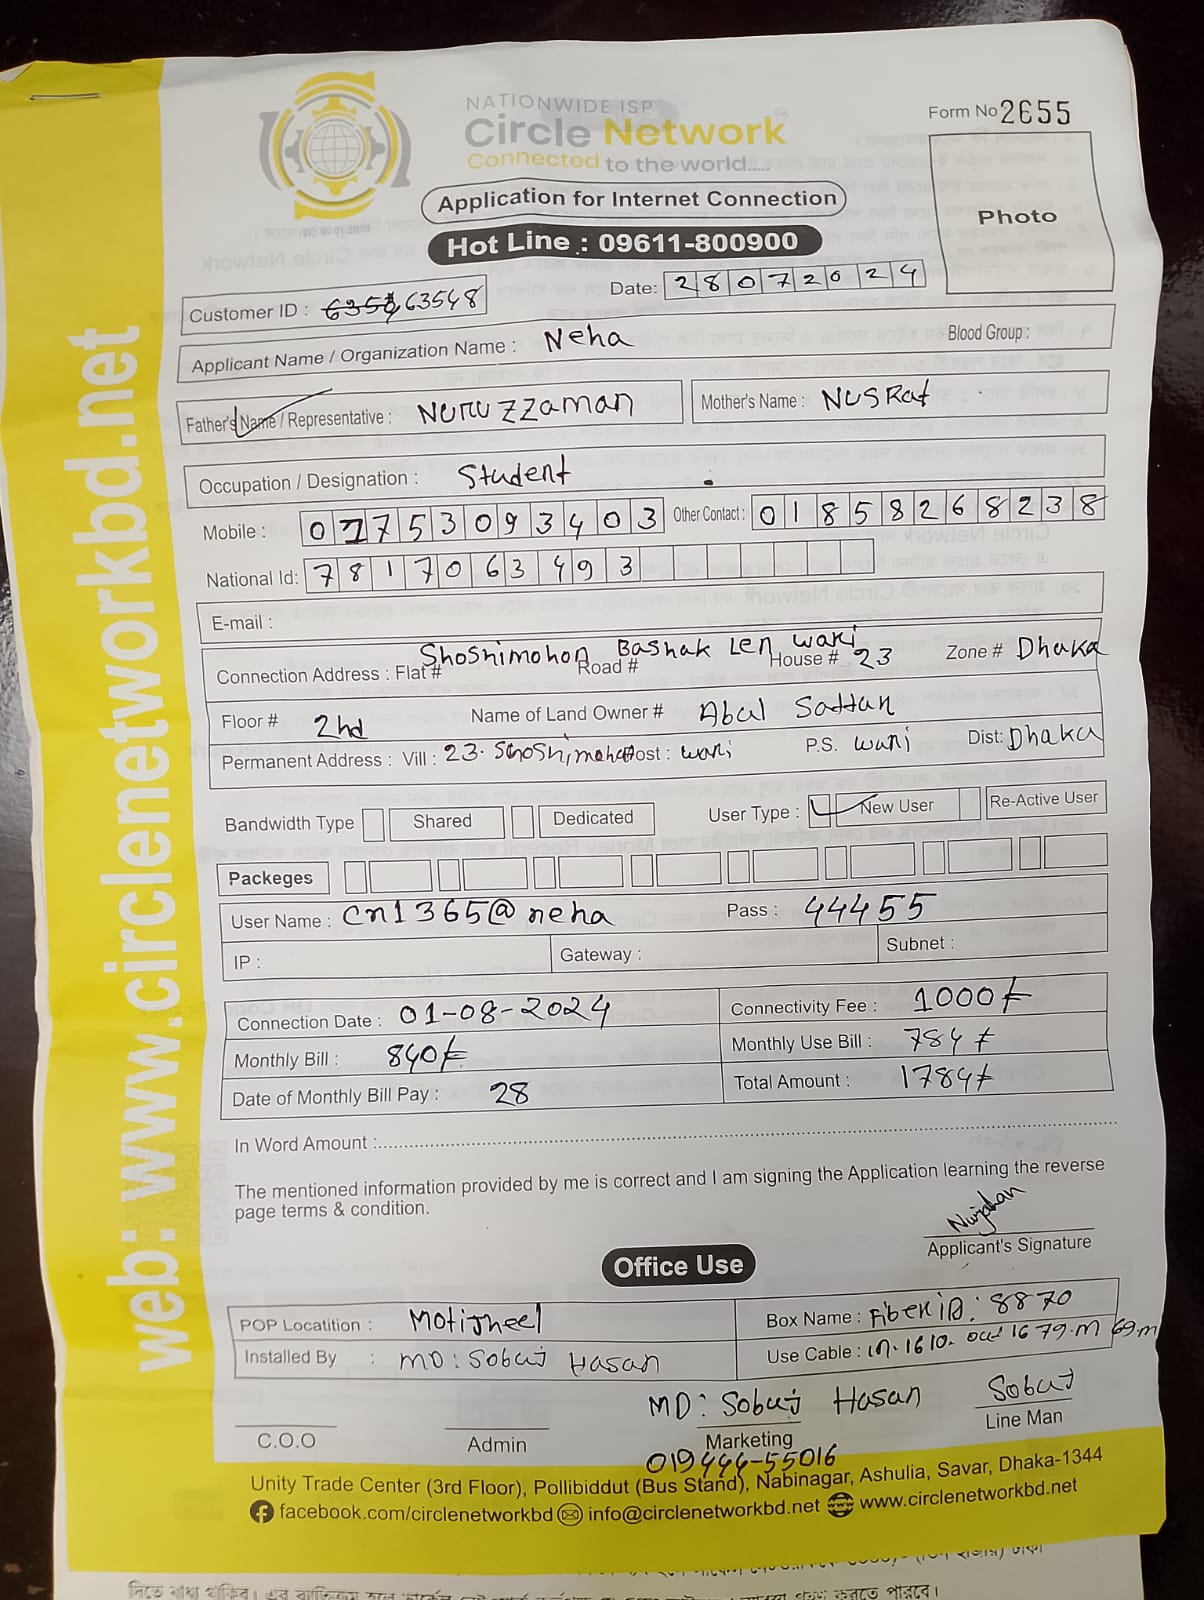 NATIONWIDE ISP
Circle Network
Connected to the world.....
Form No 2655
Photo
Application for Internet Connection
Hot Line : 09611-800900
Date: 28072024
Customer ID : 63548
Applicant Name / Organization Name : Neha
Blood Group :
Father's Name / Representative : NURUZZAMAN
Mother's Name : NUSRat
Occupation / Designation : Student
Mobile : 01753093403 Other Contact : 01858268238
National Id: 7817063493
E-mail :
Shoshimohon Bashak Len wari
Connection Address : Flat # Road # House # 23 Zone # Dhaka
Floor # 2nd Name of Land Owner # Abul Sattar
Permanent Address : Vill : 23. Shoshimohon Post : wari P.S. wari Dist: Dhaka
Bandwidth Type Shared Dedicated User Type : New User Re-Active User
Packeges
User Name : cn1365@neha Pass : 44455
IP : Gateway : Subnet :
Connection Date : 01-08-2024 Connectivity Fee : 1000/-
Monthly Bill : 840/- Monthly Use Bill : 784/-
Date of Monthly Bill Pay : 28 Total Amount : 1784/-
In Word Amount :
The mentioned information provided by me is correct and I am signing the Application learning the reverse
page terms & condition.
Nurjahan
Applicant's Signature
Office Use
POP Locatition : Motijheel Box Name : Fiber ID: 8870
Installed By : MD: Sobuj Hasan Use Cable : in. 1610. out 1679.m 69.m
MD: Sobuj Hasan Sobuj
C.O.O Admin Marketing Line Man
019444-55016
Unity Trade Center (3rd Floor), Pollibiddut (Bus Stand), Nabinagar, Ashulia, Savar, Dhaka-1344
facebook.com/circlenetworkbd info@circlenetworkbd.net www.circlenetworkbd.net
web: www.circlenetworkbd.net